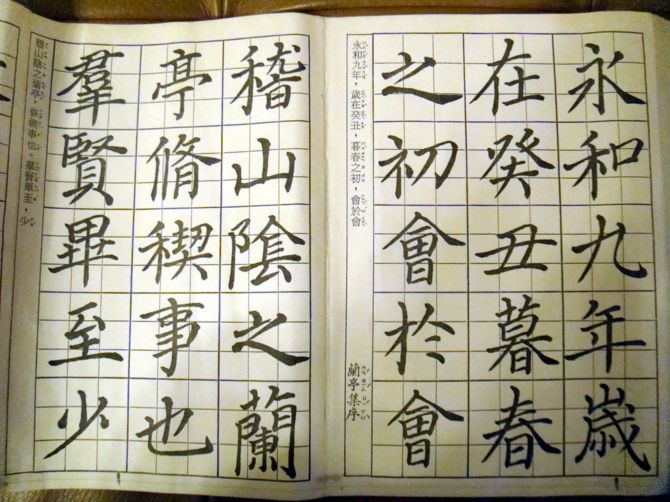 永和九年歲
在癸丑暮春
之初會於會
永和九年，歲在癸丑，暮春之初，會於會
蘭亭集序
稽山陰之蘭
亭脩稧事也
羣賢畢至少
稽山陰之蘭亭，修禊事也。羣賢畢至，少